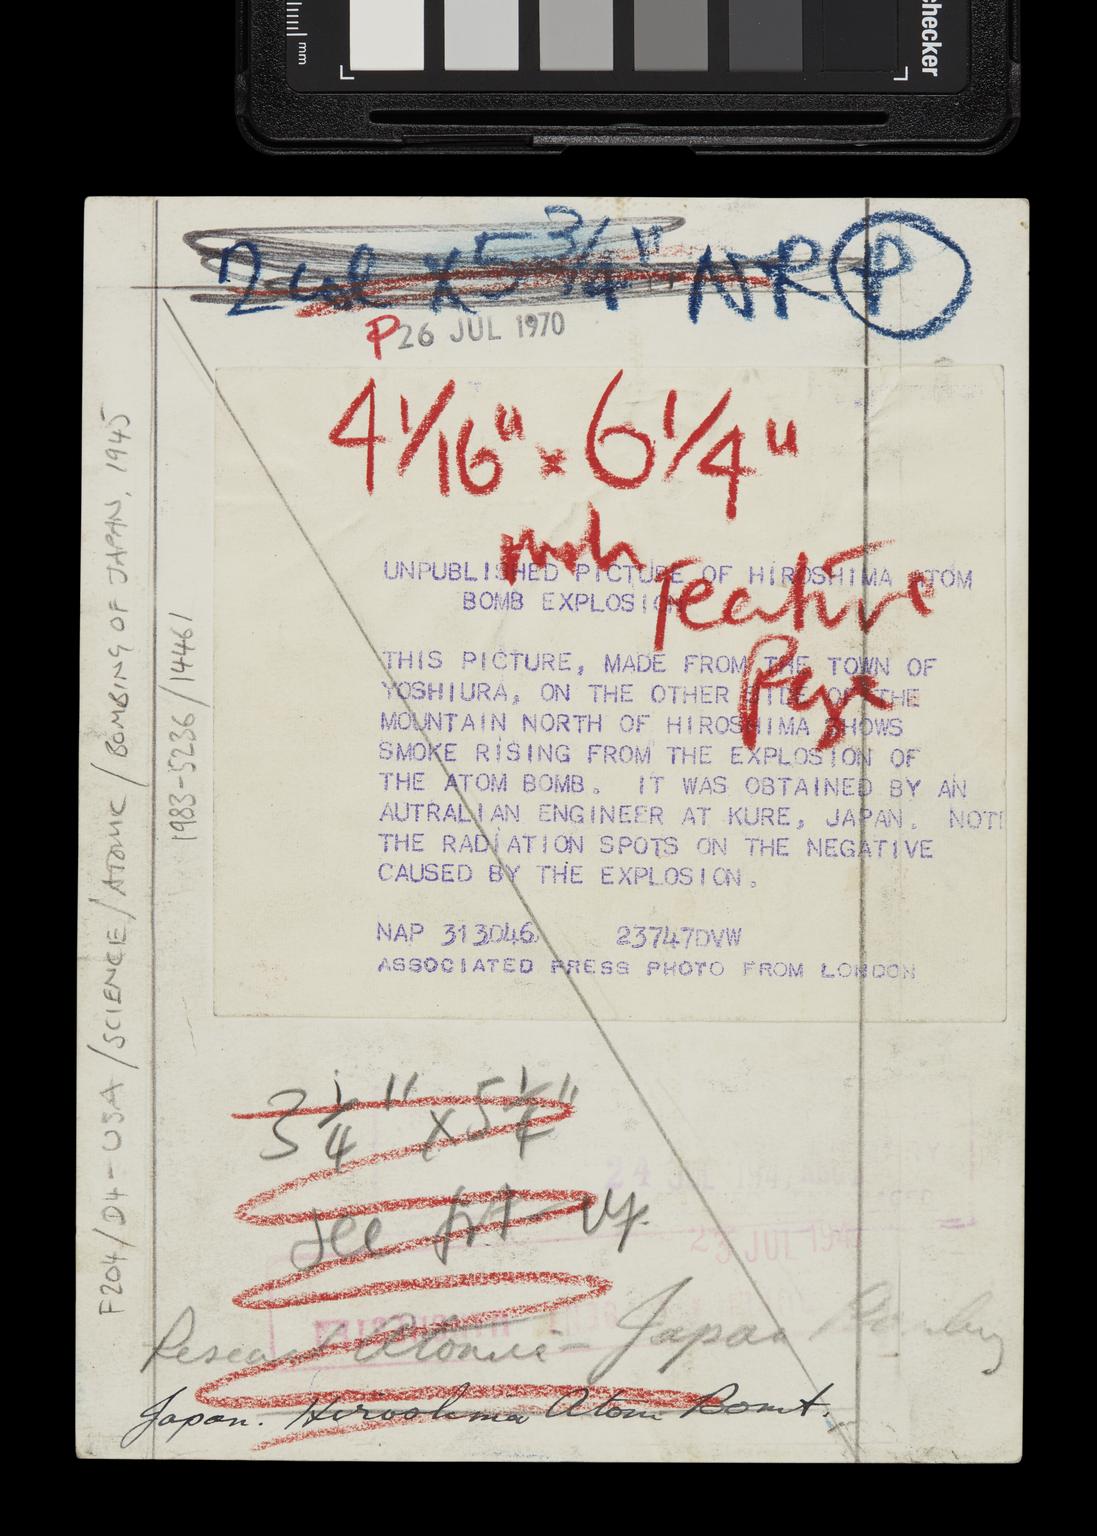 checker
mm
2 col x 5 3/4" NR P
P 26 JUL 1970
4 1/16" x 6 1/4"
Feature
Page
UNPUBLISHED PICTURE OF HIROSHIMA ATOM
BOMB EXPLOSION
THIS PICTURE, MADE FROM THE TOWN OF
YOSHIURA, ON THE OTHER SIDE OF THE
MOUNTAIN NORTH OF HIROSHIMA SHOWS
SMOKE RISING FROM THE EXPLOSION OF
THE ATOM BOMB. IT WAS OBTAINED BY AN
AUTRALIAN ENGINEER AT KURE, JAPAN. NOTE
THE RADIATION SPOTS ON THE NEGATIVE
CAUSED BY THE EXPLOSION.
NAP 313046 23747DVW
ASSOCIATED PRESS PHOTO FROM LONDON
F204/D4-USA/SCIENCE/ATOMIC/BOMBING OF JAPAN, 1945
1983-5236/14461
3 1/4" x 5 1/4"
see
24 JUL
23 JUL 194
Research Atomic - Japan
Japan. Hiroshima Atom Bomb.